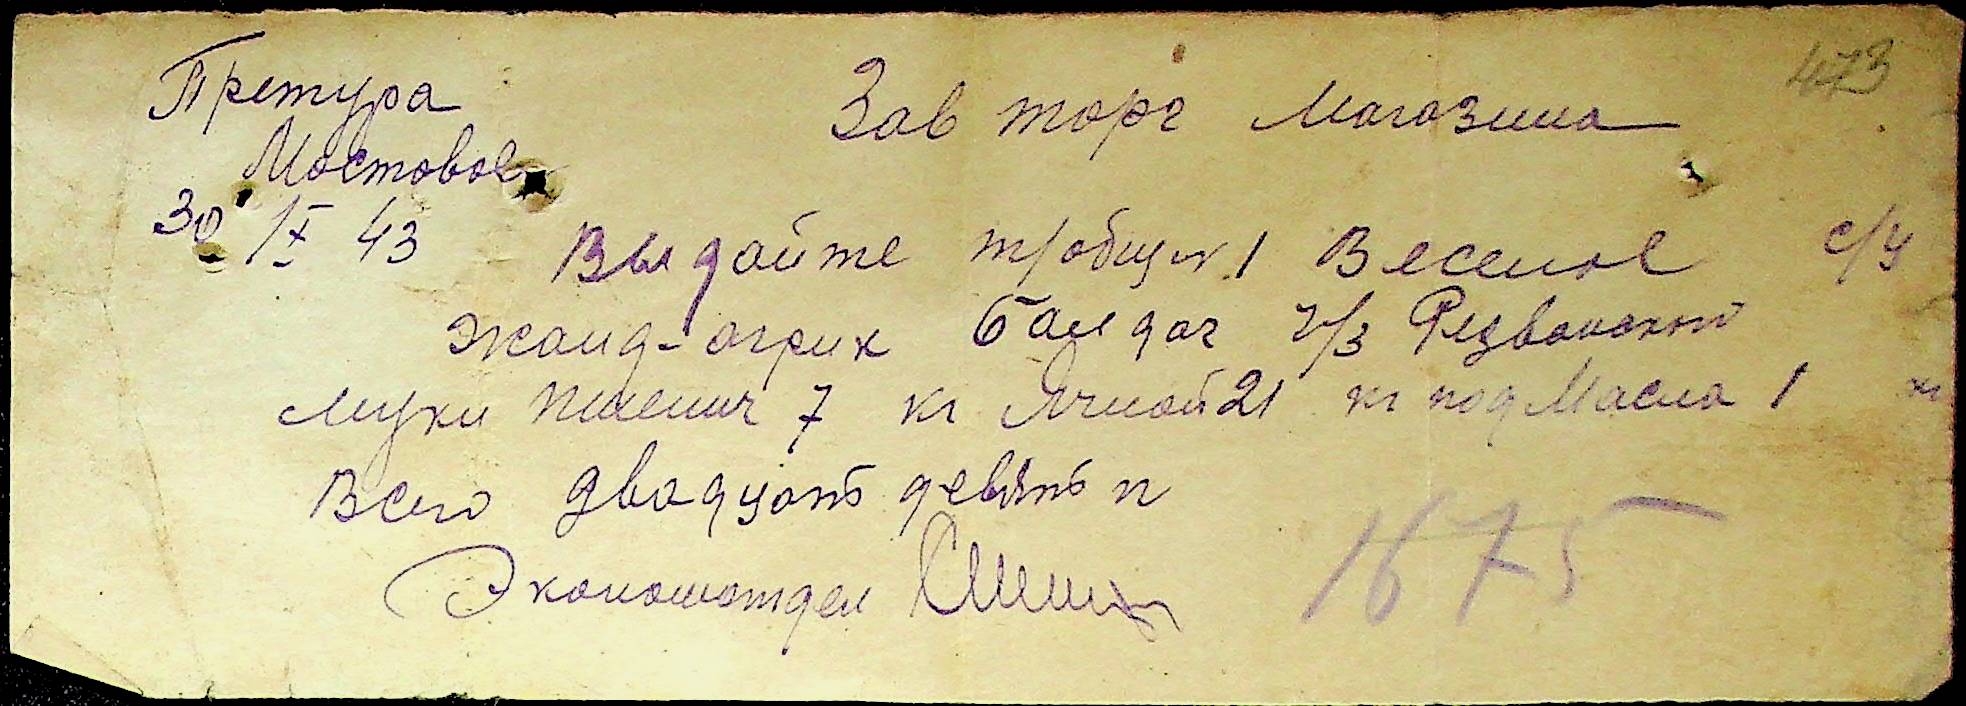 473
Претура
Мостовое
30 IX 43
Зав торг магазина
Выдайте т/общ N 1 Веселое с/у
жанд-агрик Бандач ч/з Резванского
муки пшенич 7 кг Ячной 21 кг под Масла 1 кг
Всего двадцать девять п
Экономотдел
1675